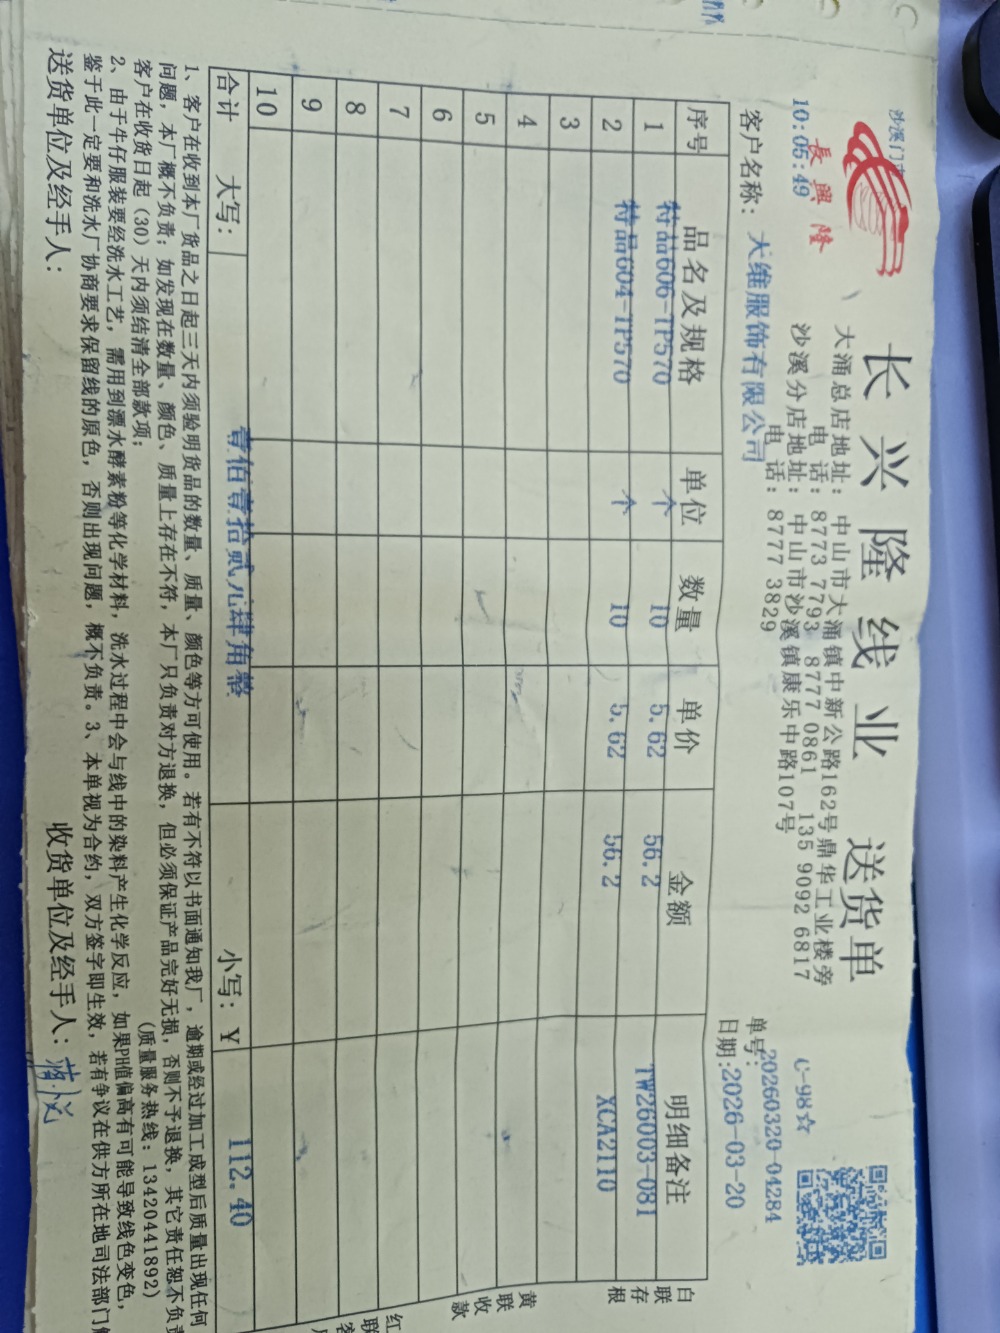 長興隆
10:05:49
长兴隆线业 送货单
大涌总店地址：中山市大涌镇中新公路162号鼎华工业楼旁
电 话：8773 7793 8777 0861 135 9092 6817
沙溪分店地址：中山市沙溪镇康乐中路107号
电 话：8777 3829
C-98☆
单号:20260320-04284
客户名称：大维服饰有限公司
日期:2026-03-20
序号 品名及规格 单位 数量 单价 金额 明细备注
1 特品606-TP570 个 10 5.62 56.2 TW26003-081
2 特品604-TP570 个 10 5.62 56.2 XCA2110
3
4
5
6
7
8
9
10
合计 大写：壹佰壹拾贰元肆角整 小写：¥ 112.40
白联存根
黄联收款
红联客
1、客户在收到本厂货品之日起三天内须验明货品的数量、质量、颜色等方可使用。若有不符以书面通知我厂，逾期或经过加工成型后质量出现任何
问题，本厂概不负责；如发现在数量、颜色、质量上存在不符，本厂只负责对方退换，但必须保证产品完好无损，否则不予退换，其它责任恕不负责
客户在收货日起（30）天内须结清全部款项； (质量服务热线：13420441892)
2、由于牛仔服装要经洗水工艺，需用到漂水酵素粉等化学材料，洗水过程中会与线中的染料产生化学反应，如果PH值偏高有可能导致线色变色，
鉴于此一定要和洗水厂协商要求保留线的原色，否则出现问题，概不负责。3、本单视为合约，双方签字即生效，若有争议在供方所在地司法部门
送货单位及经手人： 收货单位及经手人：